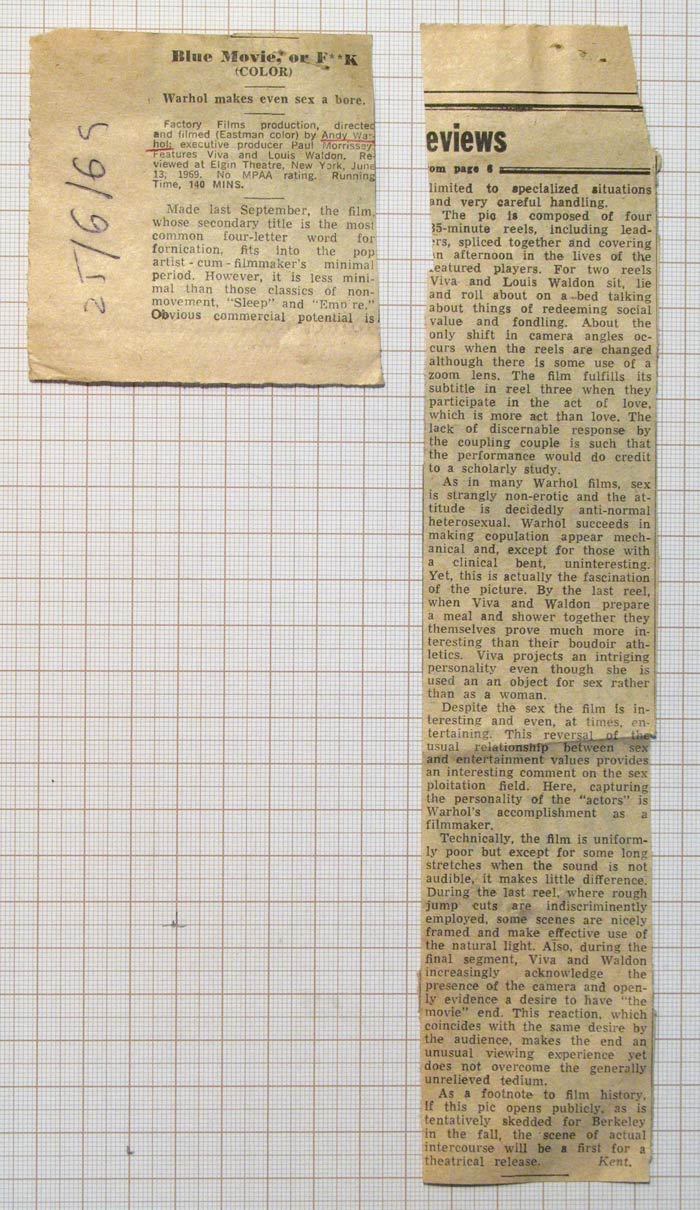 Blue Movie, or F**K
(COLOR)
Warhol makes even sex a bore.
Factory Films production, directed
and filmed (Eastman color) by Andy War-
hol; executive producer Paul Morrissey
Features Viva and Louis Waldon. Re-
viewed at Elgin Theatre, New York, June
13, 1969. No MPAA rating. Running
Time, 140 MINS.
Made last September, the film,
whose secondary title is the most
common four-letter word for
fornication, fits into the pop
artist-cum-filmmaker's minimal
period. However, it is less mini-
mal than those classics of non-
movement, "Sleep" and "Empire."
Obvious commercial potential is
25/6/69
eviews
om page 6
limited to specialized situations
and very careful handling.
The pic is composed of four
35-minute reels, including lead-
ers, spliced together and covering
an afternoon in the lives of the
featured players. For two reels
Viva and Louis Waldon sit, lie
and roll about on a bed talking
about things of redeeming social
value and fondling. About the
only shift in camera angles oc-
curs when the reels are changed
although there is some use of a
zoom lens. The film fulfills its
subtitle in reel three when they
participate in the act of love,
which is more act than love. The
lack of discernable response by
the coupling couple is such that
the performance would do credit
to a scholarly study.
As in many Warhol films, sex
is strangly non-erotic and the at-
titude is decidedly anti-normal
heterosexual. Warhol succeeds in
making copulation appear mech-
anical and, except for those with
a clinical bent, uninteresting.
Yet, this is actually the fascination
of the picture. By the last reel,
when Viva and Waldon prepare
a meal and shower together they
themselves prove much more in-
teresting than their boudoir ath-
letics. Viva projects an intriging
personality even though she is
used an an object for sex rather
than as a woman.
Despite the sex the film is in-
teresting and even, at times, en-
tertaining. This reversal of the
usual relationship between sex
and entertainment values provides
an interesting comment on the sex
ploitation field. Here, capturing
the personality of the "actors" is
Warhol's accomplishment as a
filmmaker.
Technically, the film is uniform-
ly poor but except for some long
stretches when the sound is not
audible, it makes little difference.
During the last reel, where rough
jump cuts are indiscriminently
employed, some scenes are nicely
framed and make effective use of
the natural light. Also, during the
final segment, Viva and Waldon
increasingly acknowledge the
presence of the camera and open-
ly evidence a desire to have "the
movie" end. This reaction, which
coincides with the same desire by
the audience, makes the end an
unusual viewing experience yet
does not overcome the generally
unrelieved tedium.
As a footnote to film history,
if this pic opens publicly, as is
tentatively skedded for Berkeley
in the fall, the scene of actual
intercourse will be a first for a
theatrical release. Kent.